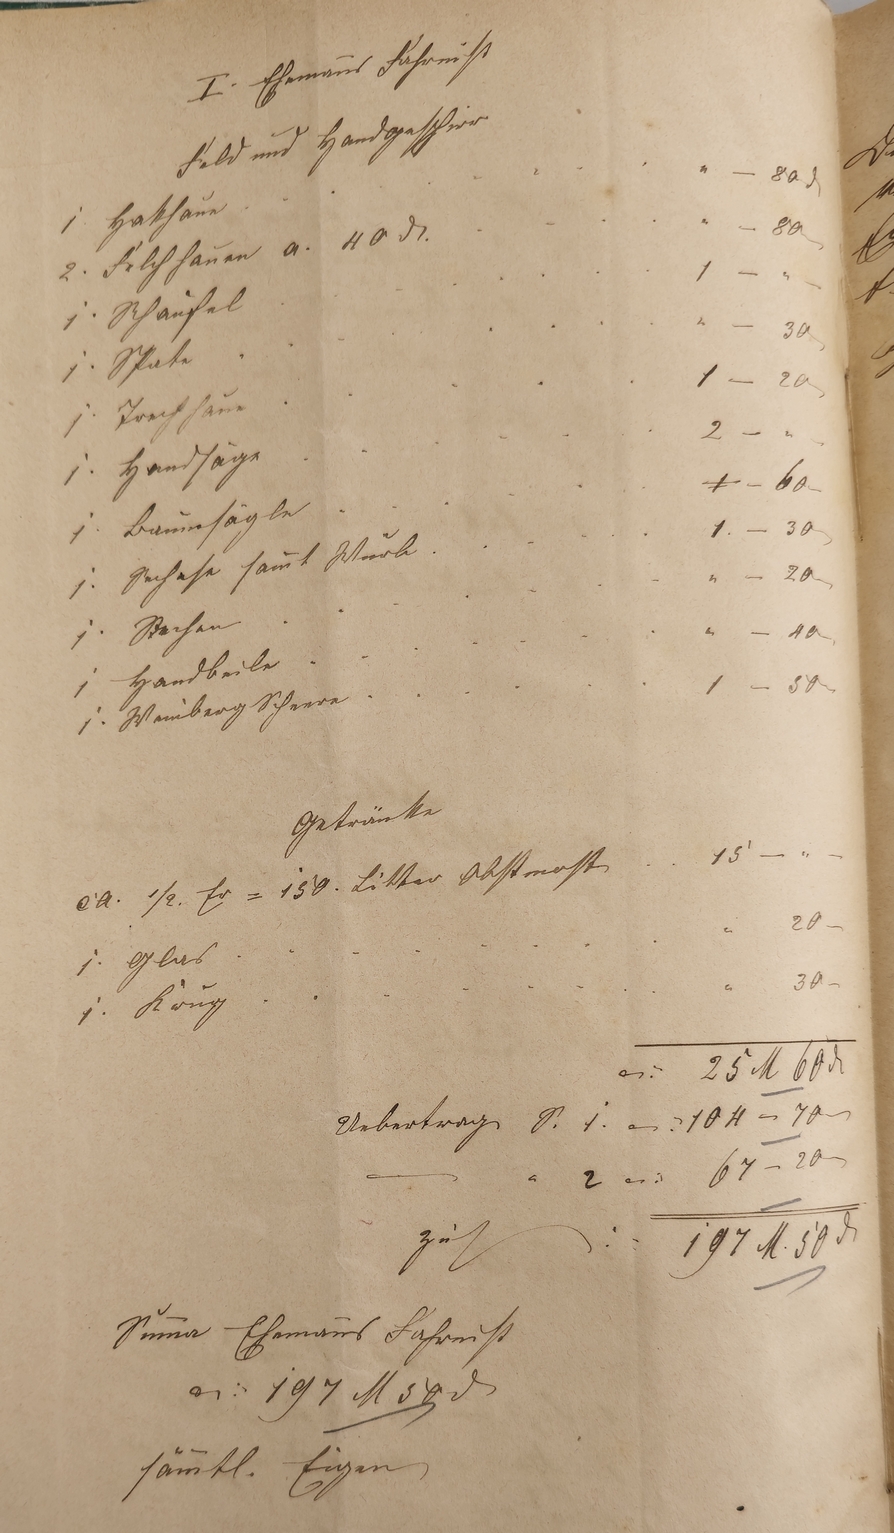 I. Ehemanns Fahrniß
Feld und Handgeschirr
1 Hakhaue " — 80 ₰
2. Felghauen a. 40 ₰. " — 80
1. Schaufel 1 — "
1. Spate " — 30
1. haue 1 — 20
1. Handsäge 2 — "
1. Baumsägle 1 — 60
1. Sechse sammt Wurb 1. — 30
1. Rechen " — 20
1 Handbeile " — 40
1. Weinberg Scheere 1 — 50
Getränke
ca. 1/2. Er = 150. Litter Obstmost 15 — " —
1. Glas " 20 —
1. Krug " 30 —
25 M 60 ₰
Uebertrag S. 1. 104 — 70
— " 2 67 — 20
zus. : 197 M. 50 ₰
Summa Ehemanns Fahrniß
197 M 50 ₰
sämmtl. Eigen